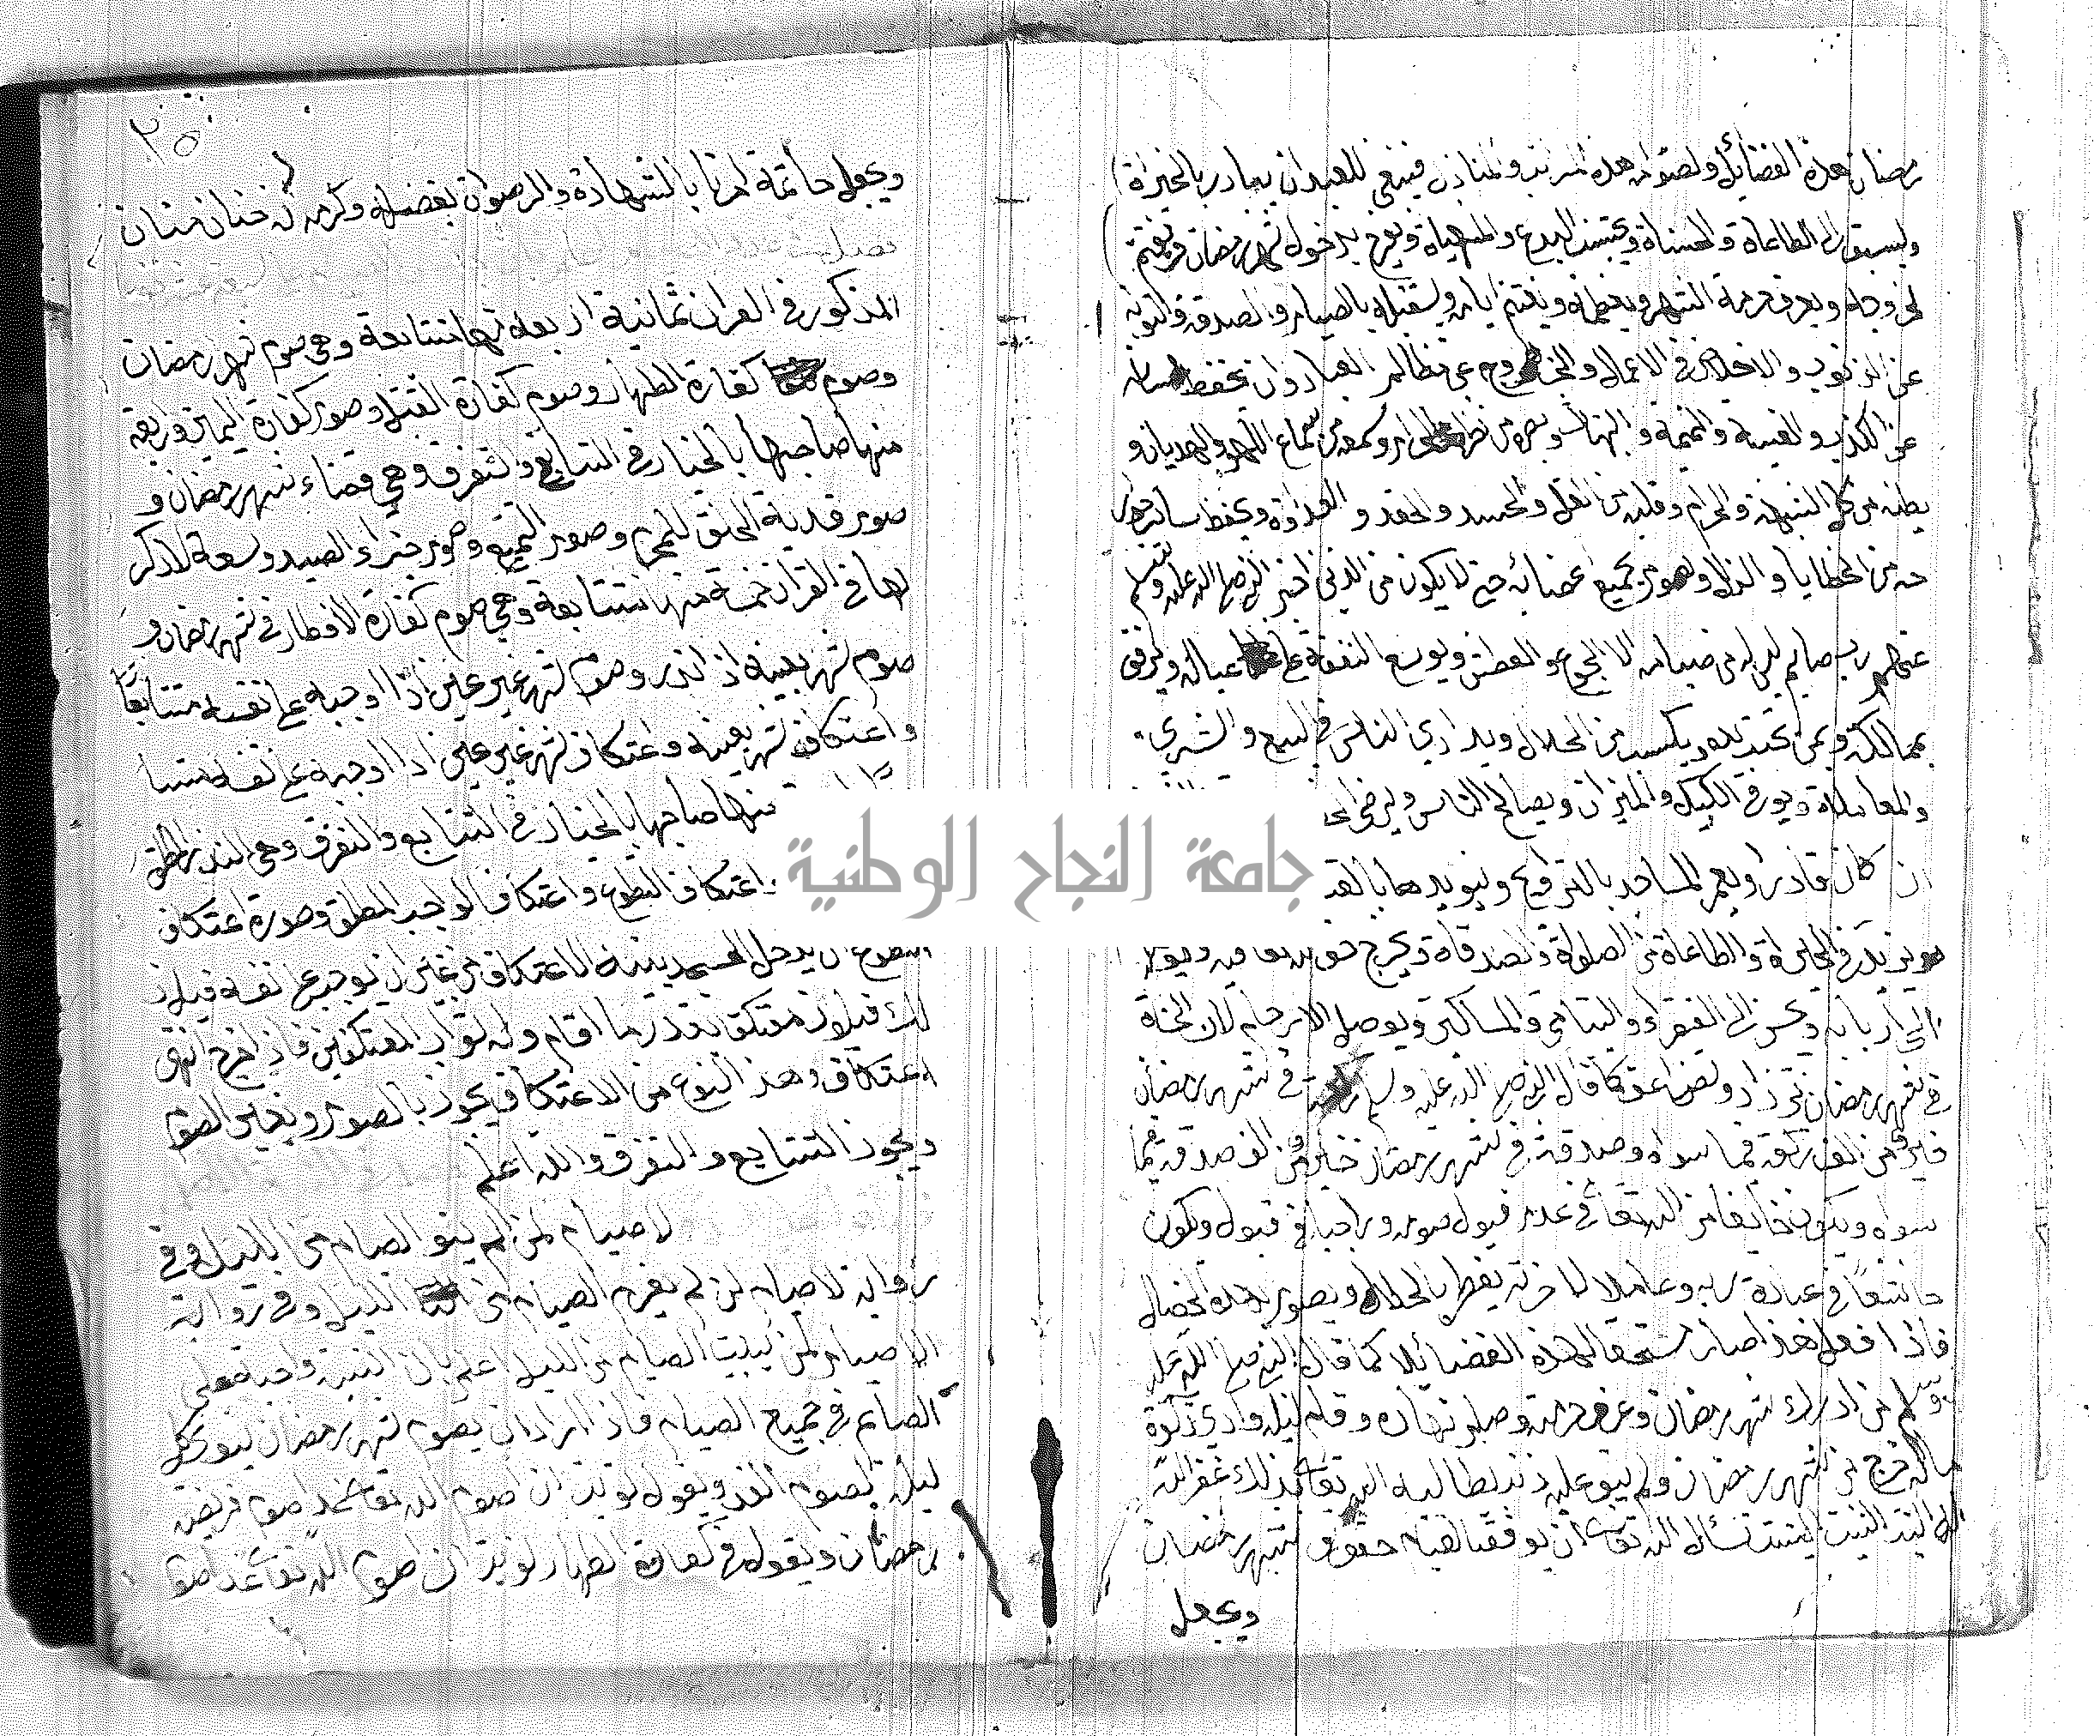 رمضان هذه الفضائل ولصوامه هذه المراتب والمنازل فينبغي للعبد ان يبادر بالخيراة
وليسبق الى الطاعاة والحسناة ويجتنب البدع والمنهياة ويفرح بدخول شهر رمضان ويغتم
لخروجه ويعرف حرمة الشهر ويعظمه ويغتنم ايامه ويستقبله بالصيام والصدقة والتوبة
عن الذنوب والاخلاص في الاعمال والخروج عن مظالم العباد وان يحفظ لسانه
عن الكذب والغيبة والنميمة والبهتان وبصره من نظر الحرام وسمعه من سماع اللهو والهديان و
بطنه من كل الشبهة والحرام وقلبه من الغل والحسد والحقد والعداوة ويحفظ سائر جوار
حه من الخطايا والزلل ولهو بجميع اعضائه حتى لا يكون من الذي اخبر النبي صلى الله عليه وسلم
عنهم رب صايم ليس له من صيامه الا الجوع والعطش ويوسع النفقة على عياله ويرفق
بمماليكه وبمن تحت يده ويكتسب من الحلال ويداري الناس في البيع والشرى
والمعاملاة ويوفي الكيل والميزان ويصالح الناس ويرضي
ان كان قادرا ويعمر المساجد بالتراويح وينويدها بالقد
ويزيد في الخيراة والطاعاة من الصلوة والصدقاة ويخرج حق الله تعالى فيه ويوصل
الى اربابه ويحسن الى الفقراء واليتامى والمساكين ويوصل الارحام لان الحسناة
في شهر رمضان تزداد وتضاعف كما قال النبي صلى الله عليه وسلم في شهر رمضان
خير من الف ركعة فيما سواه وصدقة في شهر رمضان خير من الف صدقة فيما
سواه ويكون خايفا من الله تعالى في عدم قبول صومه وراجيا في قبوله ويكون
خاشعا في عبادة ربه وعاملا لاخرته يفطر بالحلال ويصوم بهذه الخصال
فاذا فعل هذا صار مستحقا لهذه الفضائل كما قال النبي صلى الله عليه
وسلم من ادرك شهر رمضان وعرف حرمته وصام نهاره وقام ليله وادى زكوة
ماله خرج من شهر رمضان ولم يبق عليه ذنب يطالبه الله تعالى بذلك غفر الله
له البتة البتة البتة نسال الله تعالى ان يوفقنا لقيام حقوق شهر رمضان
ويجعل
٢٥
ويجعل خاتمة امرنا بالشهادة والرضوان بفضله وكرمه انه حنان منان
المذكور في القران ثمانية اربعة منها متتابعة وهي صوم شهر رمضان
وصوم كفارة الظهار وصوم كفارة القتل وصوم كفارة اليمين واربعة
منها صاحبها بالخيار في التتابع والتفرق وهي قضاء شهر رمضان و
صوم فدية الحلق للمحرم وصوم التمتع وصوم جزاء الصيد وسبعة لا ذكر
لها في القران خمسة منها متتابعة وهي صوم كفارة الافطار في شهر رمضان و
صوم شهر بعينه اذا نذر وصوم شهر غير عين اذا اوجبه على نفسه متتابعا
واعتكاف شهر بعينه واعتكاف شهر غير عين اذا اوجبه على نفسه متتا
منها صاحبها بالخيار في التتابع والتفرق وهي النذر المطلق
اعتكاف التطوع واعتكاف الواجب المطلق وصورة اعتكاف
التطوع ان يدخل المسجد بنية الاعتكاف من غير ان يوجب على نفسه قبل ذ
لك فيكون معتكفا بقدر ما اقام وله ثواب المعتكفين فاذا خرج انتهى
اعتكافه وهذا النوع من الاعتكاف يجوز بالصوم وبغير الصوم
ويجوز التتابع والتفرق والله اعلم
لا صيام لمن لم ينو الصيام من الليل وفي
رواية لا صيام لمن لم يعزم الصيام من الليل وفي رواية
لا صيام لمن لم يبيت الصيام من الليل اعلم بان النية واجبة على
الصايم في جميع الصيام فاذا اراد ان يصوم شهر رمضان ينوي كل
ليلة لصوم الغد ويقول نويت ان اصوم لله تعالى غدا صوم فريضة
رمضان ويقول في كفارة الظهار نويت ان اصوم لله تعالى غدا صوم
جامعة النجاح الوطنية